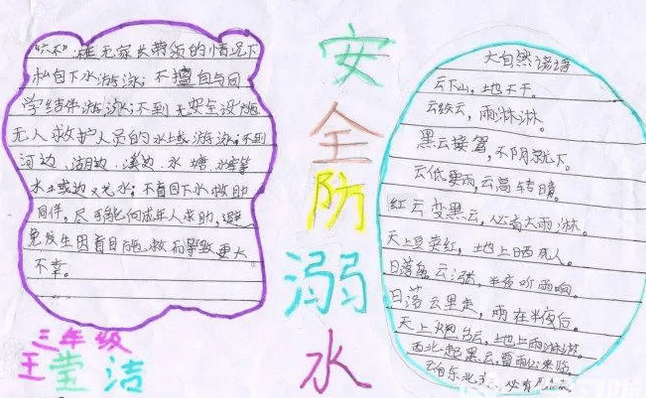 "六不":在无家长带领的情况下
私自下水游泳;不擅自与同
学结伴游泳;不到无安全设施
无人救护人员的水域游泳;不到
河边、湖边、溪边、水塘、水库等
水上或边
同伴,尽可能向成年人求助,避
免发生因盲目施救而导致更大
不幸。
三年级
王莹洁
安全防溺水
大自然谚语
云下山,地不干。
云绞云,雨淋淋。
黑云接驾,不阴就下。
云低要雨,云高转晴。
红云变黑云,必有大雨淋。
天上豆荚红,地上晒
日落乌云涨,半夜听雨响。
日落云里走,雨在半夜后。
天上炮台云,地上雨淋淋。
西北起黑云,雷雨必来临